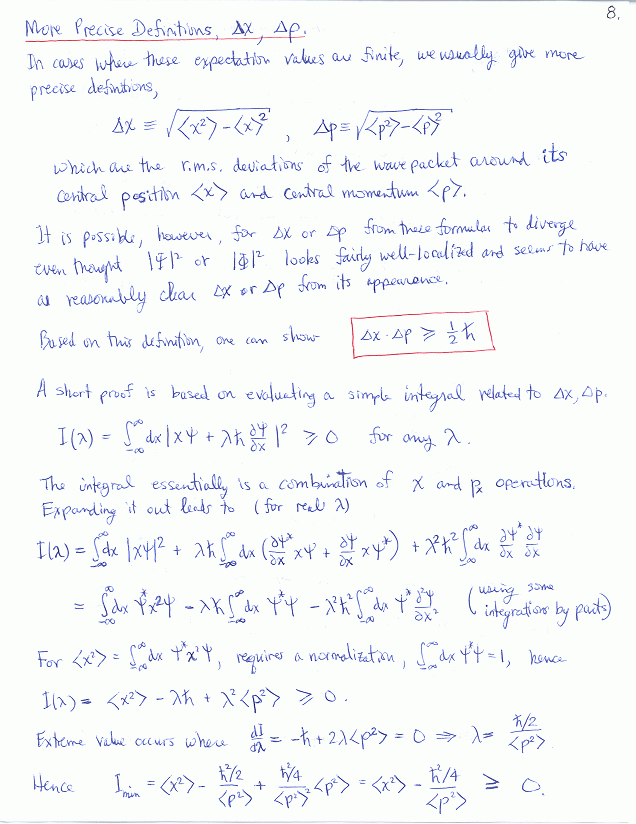 8.
More Precise Definitions, Δx, Δp.
In cases where these expectation values are finite, we usually give more
precise definitions,
Δx ≡ √(<x²> - <x>²) , Δp ≡ √(<p²> - <p>²)
which are the r.m.s. deviations of the wavepacket around its
central position <x> and central momentum <p>.
It is possible, however, for Δx or Δp from these formulas to diverge
even thought |Ψ|² or |Φ|² looks fairly well-localized and seems to have
a reasonably clear Δx or Δp from its appearance.
Based on this definition, one can show Δx · Δp ≥ ½ ħ
A short proof is based on evaluating a simple integral related to Δx, Δp.
I(λ) = ∫_{-∞}^{∞} dx |xψ + λħ ∂ψ/∂x |² ≥ 0 for any λ.
The integral essentially is a combination of x and pₓ operations.
Expanding it out leads to (for real λ)
I(λ) = ∫_{-∞}^{∞} dx |xψ|² + λħ ∫_{-∞}^{∞} dx (∂ψ*/∂x xψ + ∂ψ/∂x xψ*) + λ²ħ² ∫_{-∞}^{∞} dx ∂ψ*/∂x ∂ψ/∂x
= ∫_{-∞}^{∞} dx ψ*x²ψ - λħ ∫_{-∞}^{∞} dx ψ*ψ - λ²ħ² ∫_{-∞}^{∞} dx ψ* ∂²ψ/∂x² (using some integrations by parts)
For <x²> = ∫_{-∞}^{∞} dx ψ*x²ψ, requires a normalization, ∫_{-∞}^{∞} dx ψ*ψ = 1, hence
I(λ) = <x²> - λħ + λ²<p²> ≥ 0.
Extreme value occurs where dI/dλ = -ħ + 2λ<p²> = 0 ⇒ λ = (ħ/2)/<p²>
Hence I_min = <x²> - (ħ²/2)/<p²> + (ħ²/4)/<p²>² <p²> = <x²> - (ħ²/4)/<p²> ≥ 0.